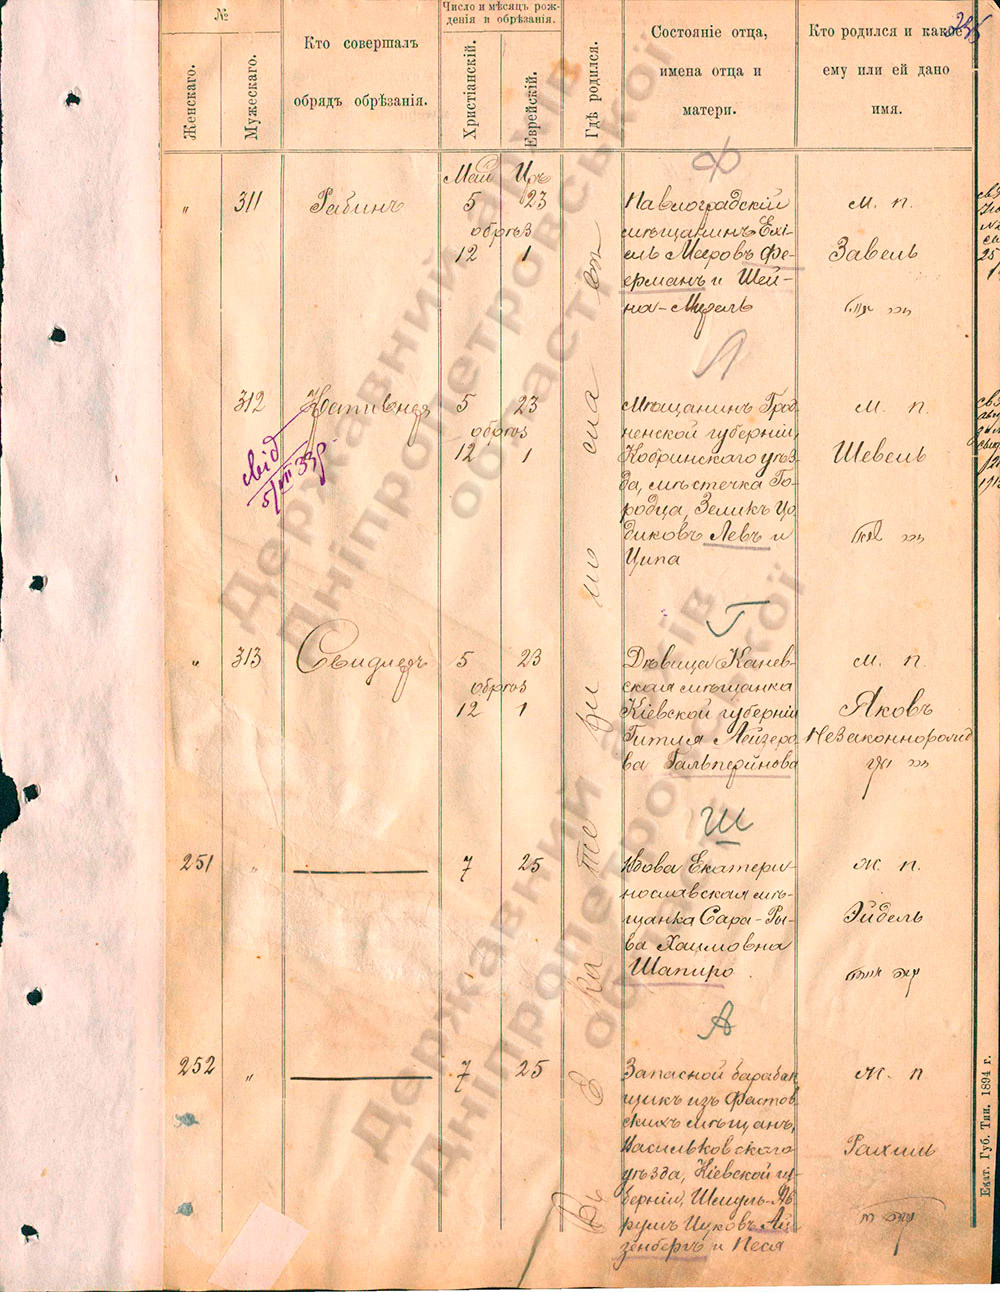 №
Женскаго.
Мужескаго.
Кто совершалъ
обрядъ обрѣзанія.
Число и мѣсяцъ рож-
денія и обрѣзанія.
Христіанскій.
Еврейскій.
Гдѣ родился.
Состояніе отца,
имена отца и
матери.
Кто родился и какое
ему или ей дано
имя.
Ф
Май Иръ
" 311 Рабинъ 5 23
обрѣз
12 1
Павлоградскій
мѣщанинъ Ехі-
ель Мееровъ Фе-
ерманъ и Шей-
на-Мирель
м. п.
Завель
Л
312 5 23
обрѣз
12 1
свід
5/VII 33р
Мѣщанинъ Грод
ненской губерніи,
Кобринскаго уѣз-
да, мѣстечка Го-
родца, Зеликъ Цо
диковъ Левъ и
Ципа
м. п.
Шевель
Г
" 313 Свидлеръ 5 23
обрѣз
12 1
Дѣвица Канев-
ская мѣщанка
Кіевской губерніи
Гитля Лейзеро
ва Гальперинова
м. п.
Яковъ
Незаконнорожд
Ш
251 " 7 25
Вдова Екатери-
нославская мѣ-
щанка Сара-Ры-
ва Хаимовна
Шапиро
ж. п.
Эйдель
А
252 " 7 25
Запасной барабан
щикъ изъ Фастов
скихъ мѣщанъ,
Васильковскаго
уѣзда, Кіевской гу-
берніи, Шмуль-Аб
румъ Ицковъ Ай
зенбергъ и Песя
ж. п.
Рахиль
Въ Екатеринославѣ
Екат. Губ. Тип. 1894 г.
Державний архів
Дніпропетровської
області
Державний архів
Дніпропетровської
області